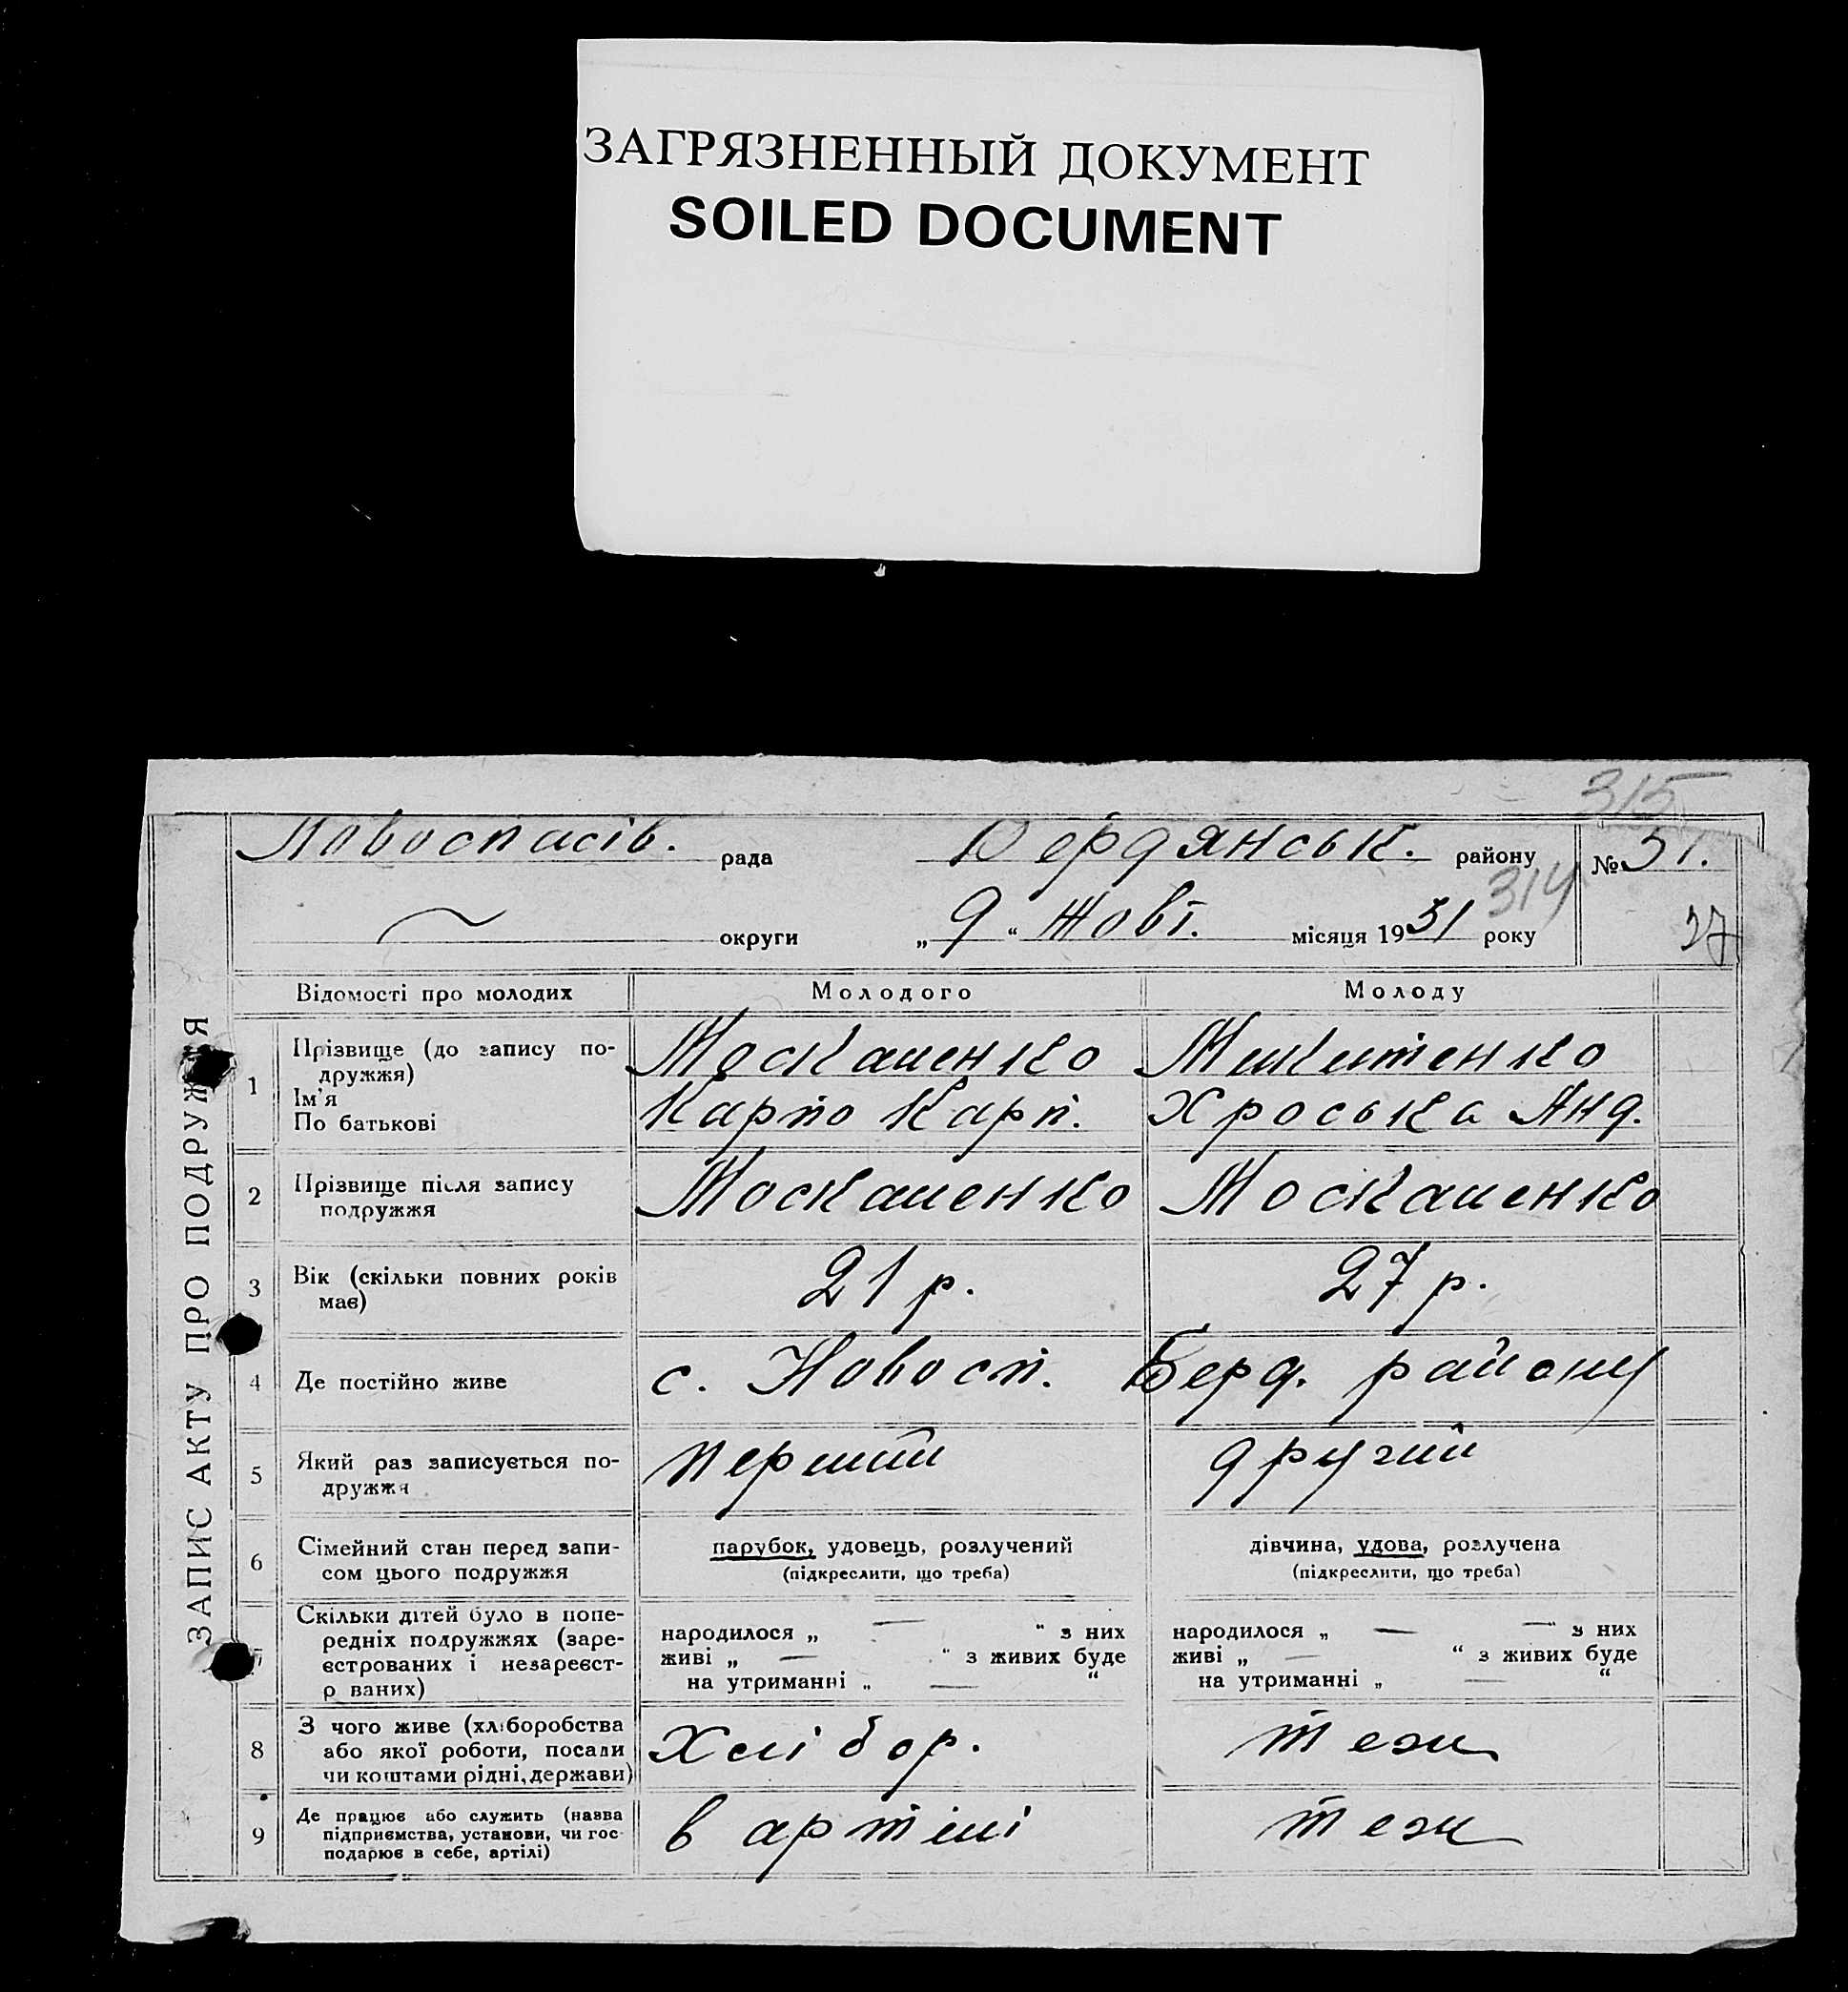 ЗАГРЯЗНЕННЫЙ ДОКУМЕНТ
SOILED DOCUMENT
315
Новоспасів. рада Бердянськ. району № 51.
314
округи „ 9 “ Жовт. місяця 1931 року 27
ЗАПИС АКТУ ПРО ПОДРУЖЖЯ
Відомості про молодих Молодого Молоду
1 Прізвище (до запису по-
дружжя) Москаленко Микитенко
Ім'я
По батькові Карпо Карп. Хроська Анд.
2 Прізвище після запису
подружжя Москаленко Москаленко
3 Вік (скільки повних років
має) 21 р. 27 р.
4 Де постійно живе с. Новосп. Берд. району
5 Який раз записується по-
дружжя перший другий
6 Сімейний стан перед запи-
сом цього подружжя
парубок, удовець, розлучений дівчина, удова, розлучена
(підкреслити, що треба) (підкреслити, що треба)
7 Скільки дітей було в попе-
редніх подружжях (заре-
єстрованих і незареєст-
р ваних)
народилося „ — “ з них народилося „ — “ з них
живі „ — “ з живих буде живі „ — “ з живих буде
на утриманні „ — “ на утриманні „ — “
8 З чого живе (хліборобства
або якої роботи, посади
чи коштами рідні, держави) Хлібор. теж
9 Де працює або служить (назва
підприємства, установи, чи гос-
подарює в себе, артілі) в артілі теж